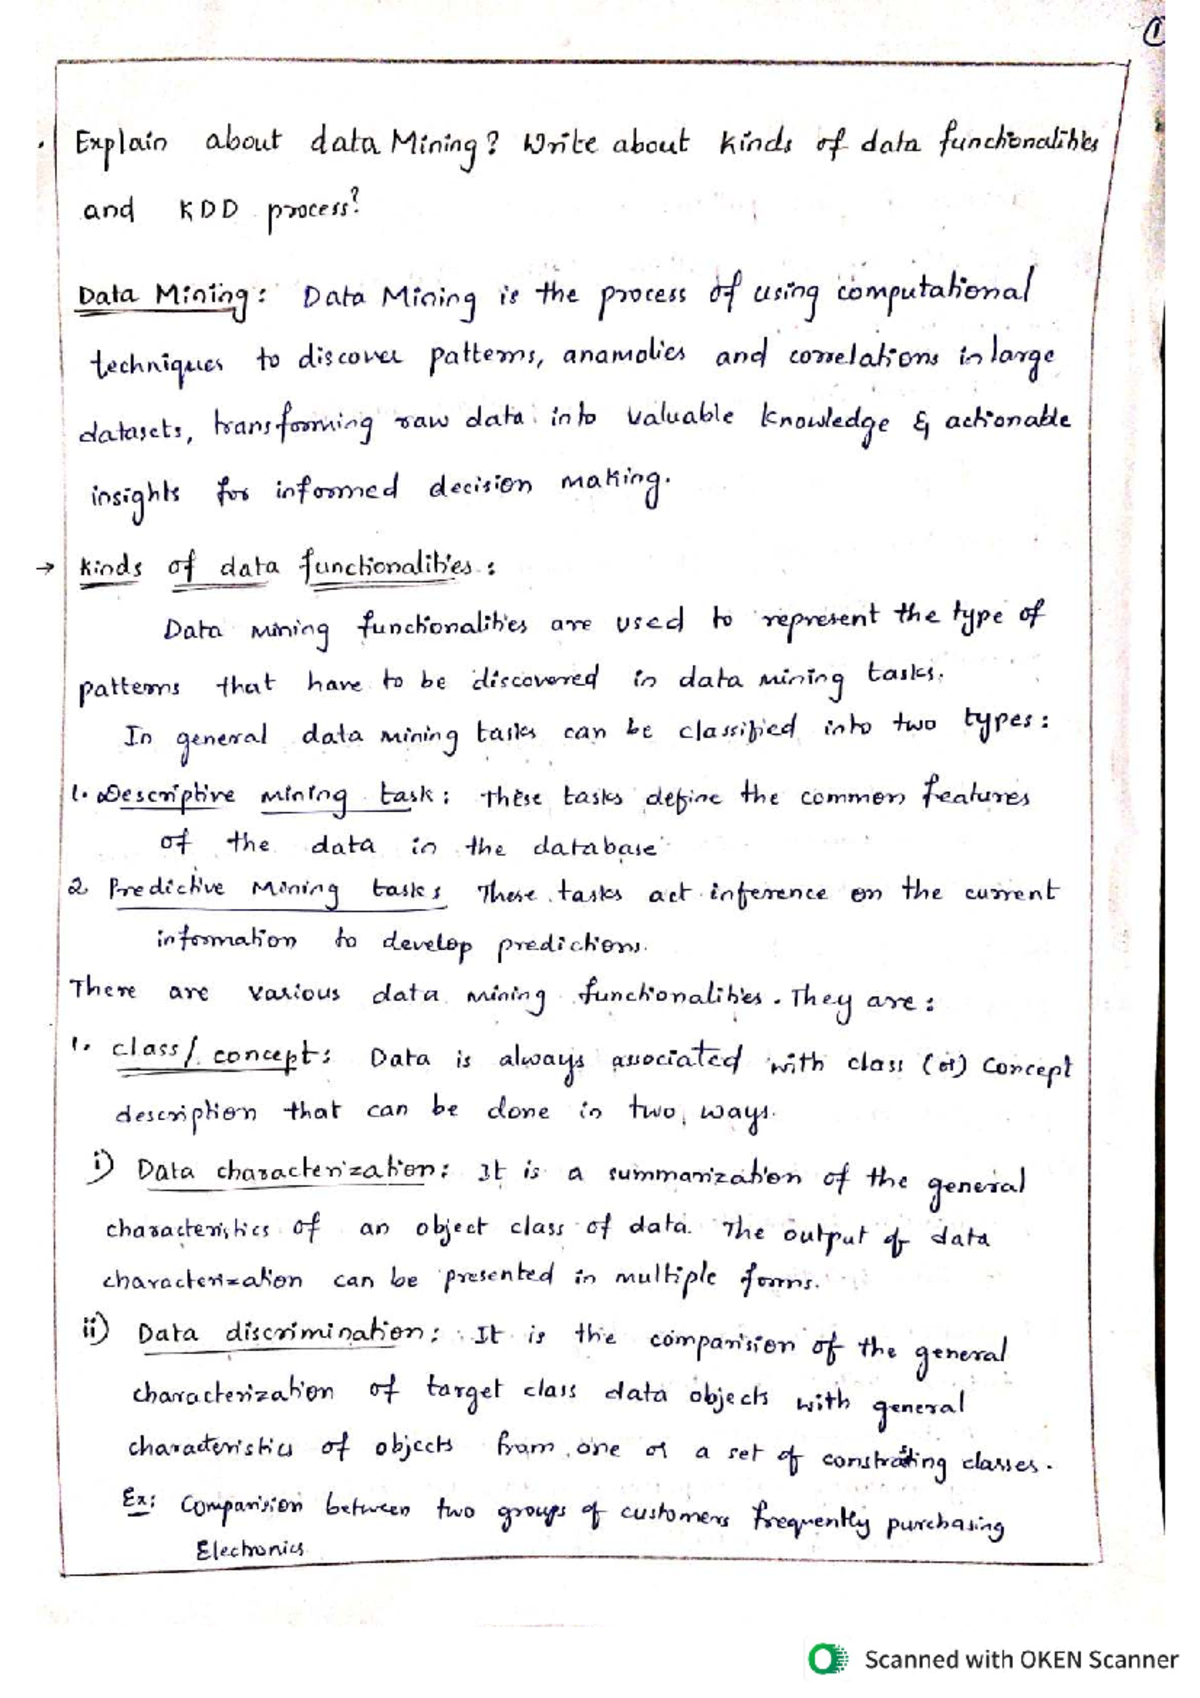 1
Explain about data Mining? Write about kinds of data functionalities
and KDD process?
Data Mining: Data Mining is the process of using computational
techniques to discover patterns, anamolies and correlations in large
datasets, transforming raw data into valuable knowledge & actionable
insights for informed decision making.
→ Kinds of data functionalities:
Data mining functionalities are used to represent the type of
patterns that have to be discovered in data mining tasks.
In general data mining tasks can be classified into two types:
1. Descriptive mining task: These tasks define the common features
of the data in the database
2 Predictive Mining tasks These tasks act inference on the current
information to develop predictions.
There are various data mining functionalities. They are:
1. class/concept: Data is always associated with class (or) concept
description that can be done in two ways.
i) Data characterization: It is a summarization of the general
characteristics of an object class of data. The output of data
characterization can be presented in multiple forms.
ii) Data discrimination: It is the comparision of the general
characterization of target class data objects with general
characteristics of objects from one or a set of constrating classes.
Ex: Comparision between two groups of customers frequently purchasing
Electronics
Scanned with OKEN Scanner